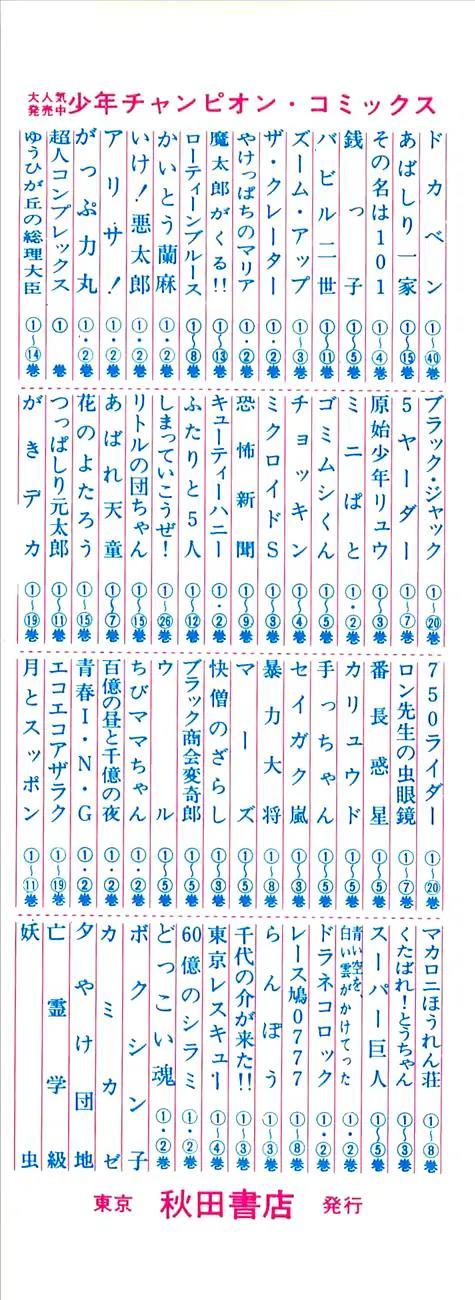 大人気発売中 少年チャンピオン・コミックス
ドカベン ①〜㊵巻
あばしり一家 ①〜⑮巻
その名は101 ①〜④巻
銭っ子 ①〜⑤巻
バビル二世 ①〜⑪巻
ズーム・アップ ①〜③巻
ザ・クレーター ①〜③巻
やけっぱちのマリア ①・②巻
魔太郎がくる!! ①〜⑬巻
ローティーンブルース ①〜⑧巻
かいとう蘭麻 ①・②巻
いけ!悪太郎 ①・②巻
アリサ! ①・②巻
がっぷ力丸 ①・②巻
超人コンプレックス ① 巻
ゆうひが丘の総理大臣 ①〜⑭巻
ブラック・ジャック ①〜⑳巻
5ヤーダー ①〜⑦巻
原始少年リュウ ①〜③巻
ミニぱと ①・②巻
ゴミムシくん ①〜⑤巻
チョッキン ①〜④巻
ミクロイドS ①〜③巻
恐怖新聞 ①〜⑨巻
キューティーハニー ①・②巻
ふたりと5人 ①〜⑫巻
しまっていこうぜ! ①〜㉖巻
リトルの団ちゃん ①〜⑮巻
あばれ天童 ①〜⑦巻
花のよたろう ①〜⑮巻
つっぱしり元太郎 ①〜⑪巻
がきデカ ①〜⑲巻
750ライダー ①〜⑳巻
ロン先生の虫眼鏡 ①〜⑦巻
番長惑星 ①〜⑤巻
カリュウド ①〜⑤巻
手っちゃん ①〜⑤巻
セイガク嵐 ①〜③巻
暴力大将 ①〜⑧巻
マーズ ①〜⑤巻
快僧のざらし ①〜③巻
ブラック商会変奇郎 ①〜⑤巻
ウル ①〜⑤巻
ちびママちゃん ①・②巻
百億の昼と千億の夜 ①・②巻
青春I・N・G ①・②巻
エコエコアザラク ①〜⑲巻
月とスッポン ①〜⑪巻
マカロニほうれん荘 ①〜⑧巻
くたばれ!とうちゃん ①〜③巻
スーパー巨人 ①〜⑤巻
青い空を、白い雲がかけてった ①・②巻
ドラネコロック ①・②巻
レース鳩0777 ①〜⑧巻
らんぽう ①〜③巻
千代の介が来た!! ①〜③巻
東京レスキュー ①〜④巻
60億のシラミ ①・②巻
どっこい魂 ①・②巻
ボクシン子
カミカゼ
夕やけ団地
亡霊学級
妖虫
東京 秋田書店 発行